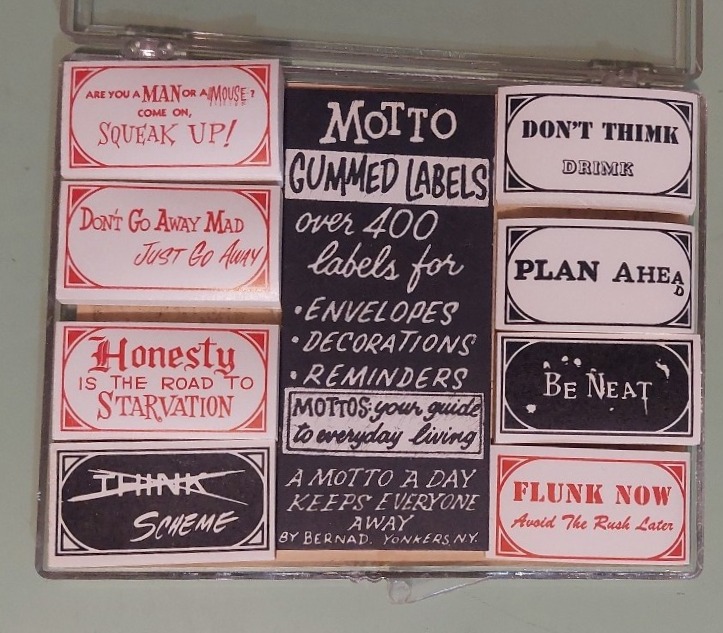 ARE YOU A MAN OR A MOUSE?
COME ON,
SQUEAK UP!
DON'T GO AWAY MAD
JUST GO AWAY
Honesty
IS THE ROAD TO
STARVATION
THINK
SCHEME
MOTTO
GUMMED LABELS
over 400
labels for
• ENVELOPES
• DECORATIONS
• REMINDERS
MOTTOS: your guide
to everyday living
A MOTTO A DAY
KEEPS EVERYONE
AWAY
BY BERNAD. YONKERS, N.Y.
DON'T THIMK
DRIMK
PLAN AHEAD
BE NEAT
FLUNK NOW
Avoid The Rush Later